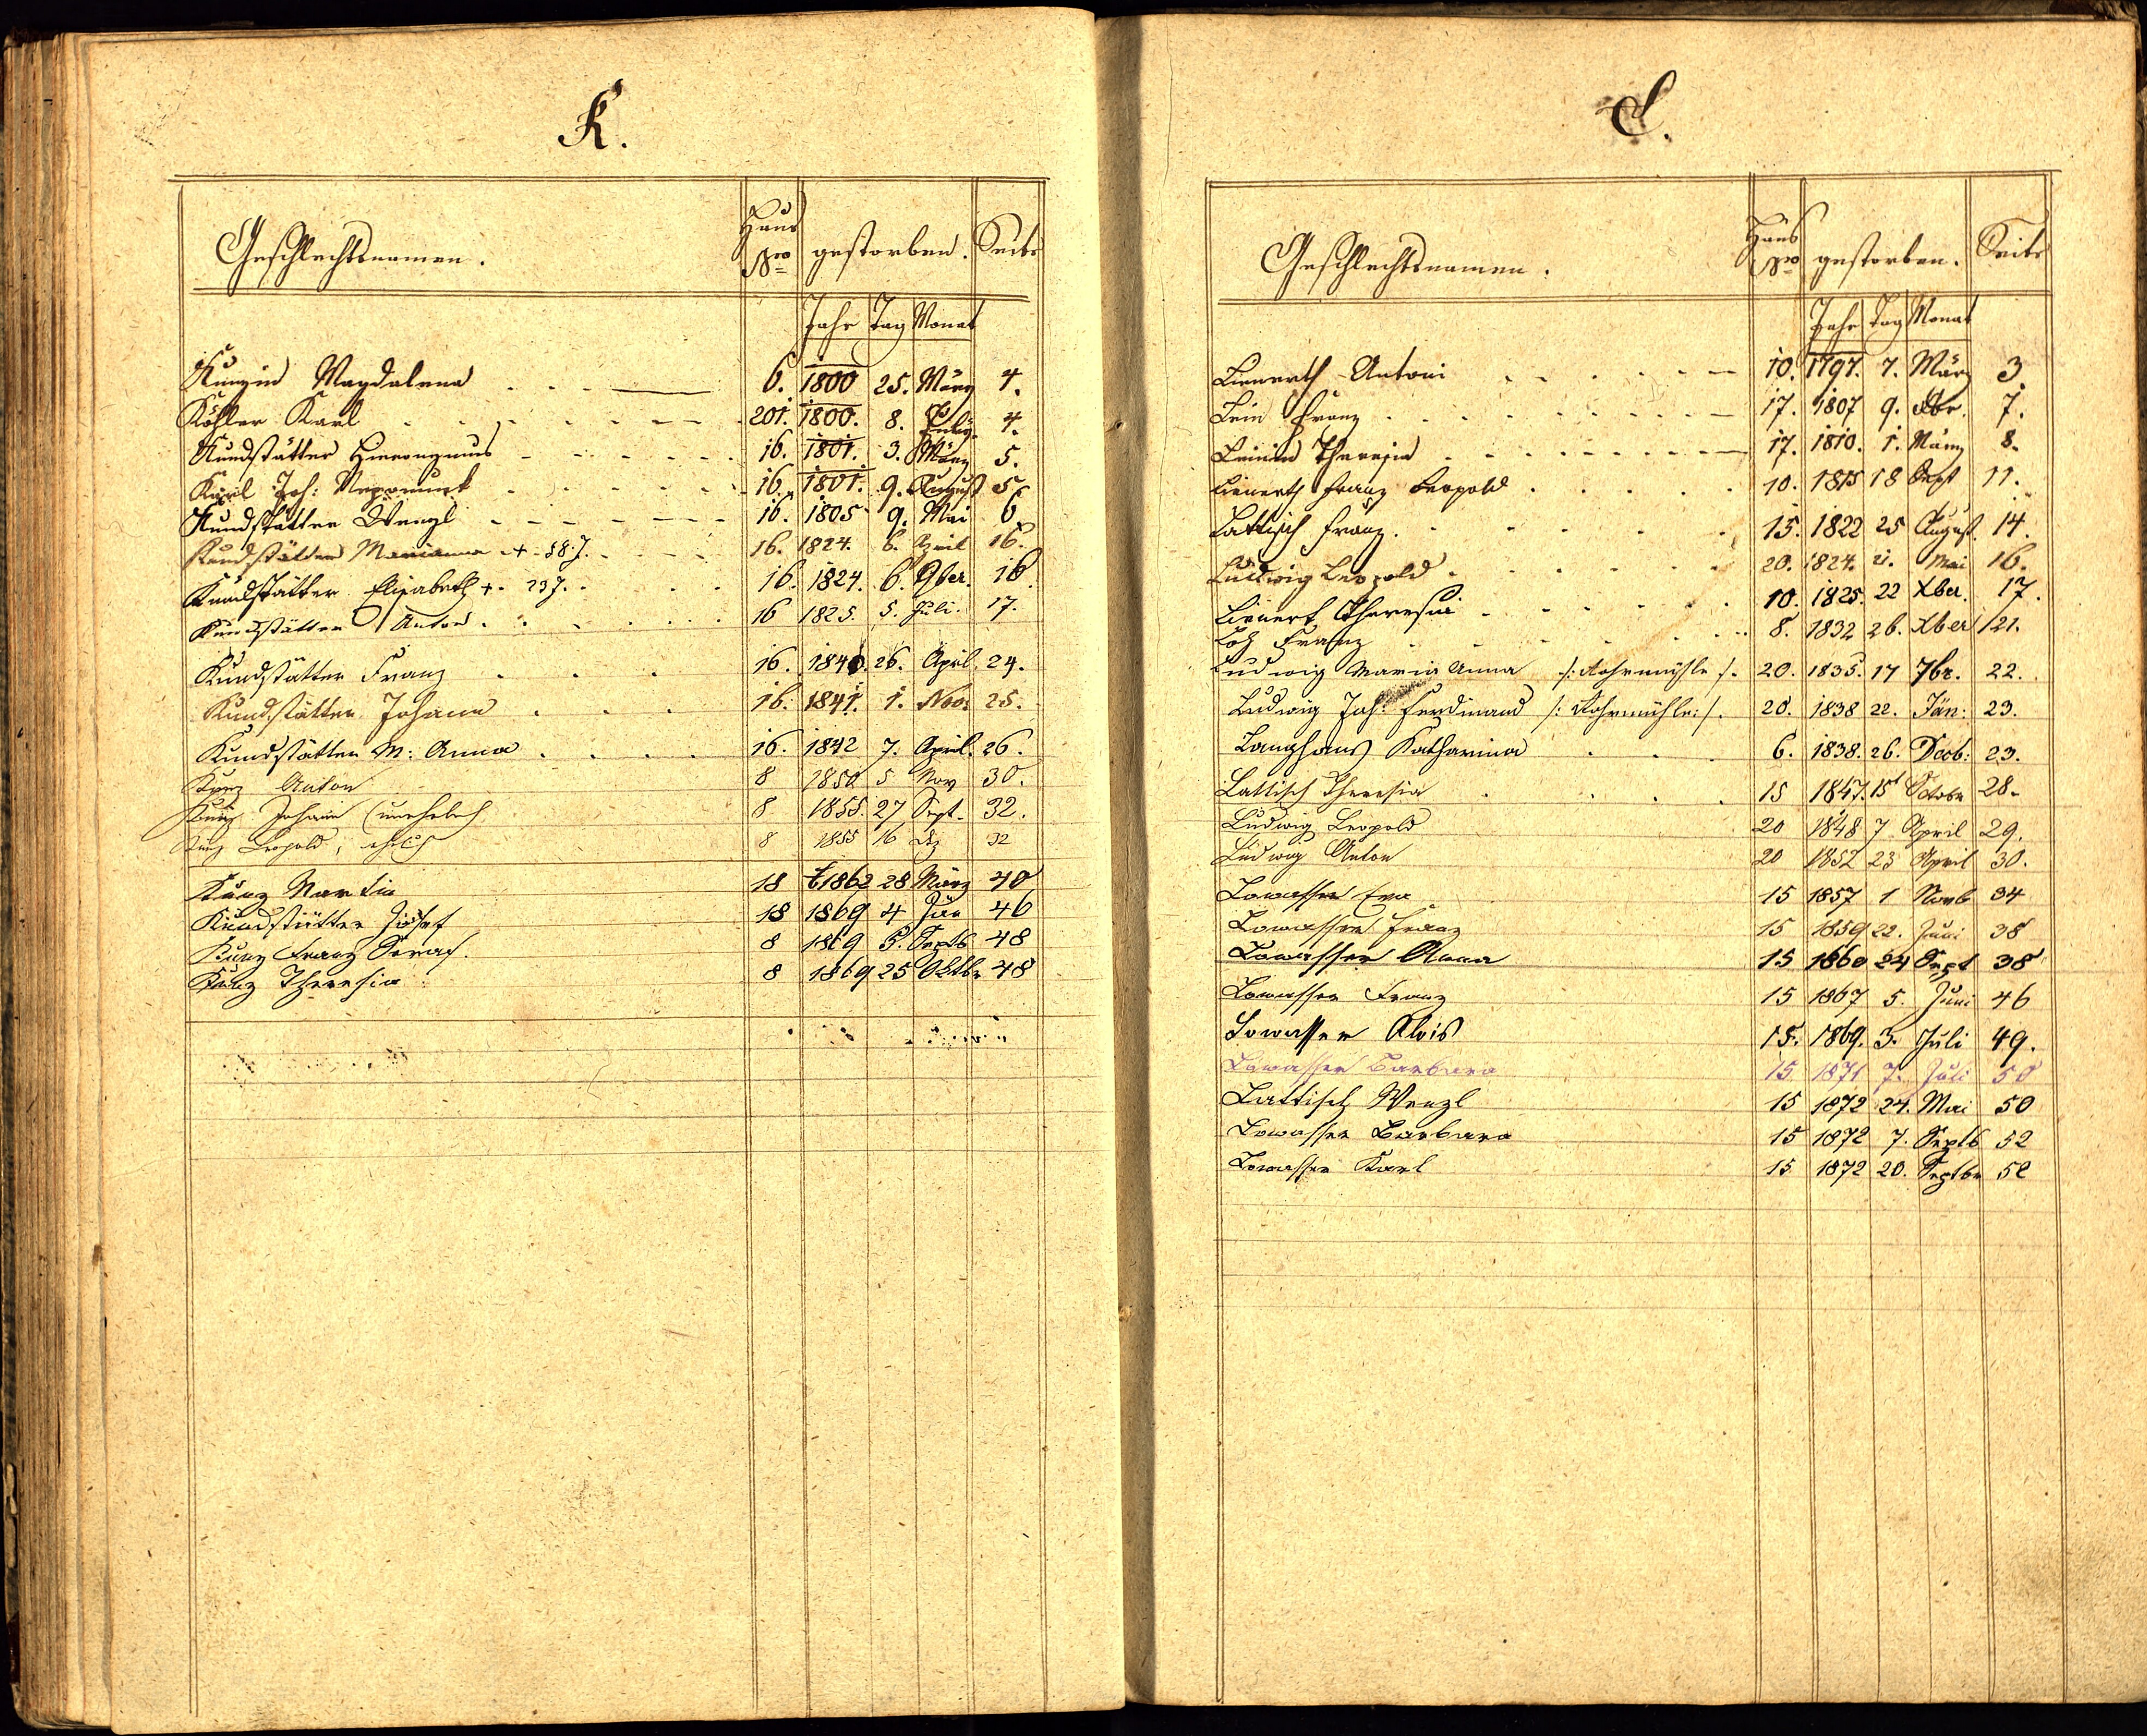 K.
Geschlechtsnamen. Haus Nro gestorben. Seite
Jahr Tag Monat
Kunzin Magdalena 6. 1800 25. März 4.
Köhler Karl 201. 1800. 8. July 4.
Kundstätter Hieronymus 16. 1801. 3. März 5.
Karil Joh: Nepomuck 16. 1801. 9. August 5
Kundstätter Wenzl 16. 1805 9. Mai 6
Kundstätter Marianna + 58 J. 16. 1824. 6. April 16.
Kundstätter Elisabeth + 23 J. 16. 1824. 6. 9ber. 16.
Kundstätter Anton 16 1825. 5. Juli. 17.
Kundstätter Franz 16. 1840. 26. April. 24.
Kundstätter Johann 16. 1841. 1. Nov: 25.
Kundstätter M: Anna 16. 1842 7. April. 26.
Kunz Anton 8 1850 5 Nov 30.
Kunz Johann (unehelich 8 1855. 27 Sept. 32.
Kunz Leopold, ehlich 8 1855 16 Dez 32
Kunz Martin 18 1862 28 März 40
Kundstätter Josef 18 1869 4 Jän 46
Kunz Franz Seraf. 8 1869 5. Septb 48
Kunz Theresia 8 1869 25 Oktbr 48
L.
Geschlechtsnamen. Haus Nro gestorben. Seite
Jahr Tag Monat
Lienerth Antoni 10. 1797. 7. März 3
Lein Franz 17. 1807 9. 7.
Leinin Theresia 17. 1810. 1. März 8.
Lienerth Franz Leopold 10. 1815 18 Sept 11.
Lattisch Franz. 15. 1822 25 August. 14.
Ludwig Leopold 20. 1824. 21. Mai 16.
Lienert Theresia 10. 1825. 22 Xber. 17.
Loh Franz 8. 1832 26. Xber 21.
Ludwig Maria Anna /: Rohrmühle /. 20. 1835. 17 7br. 22.
Ludwig Joh: Ferdinand /: Rohrmühle :/. 20. 1838 22. Jän: 23.
Langhans Katharina 6. 1838. 26. Decb: 23.
Lattisch Theresia 15 1847. 15t Octobr 28.
Ludwig Leopold 20 1848 7 April 29.
Ludwig Anton 20 1852 23 April 30.
Lowasser Eva 15 1857 1 Novb 34
Lowasser Franz 15 1859 22. Juni 38
Lowasser Anna 15 1860 24 Sept 38
Lowasser Franz 15 1867 5. Juni 46
Lowasser Alois 15. 1869. 3. Juli 49.
Lowasser Barbara 15 1871 7. Juli 50
Lattisch Wenzl 15 1872 24. Mai 50
Lowasser Barbara 15 1872 7. Septb 52
Lowasser Karl 15 1872 20. Septbr 52